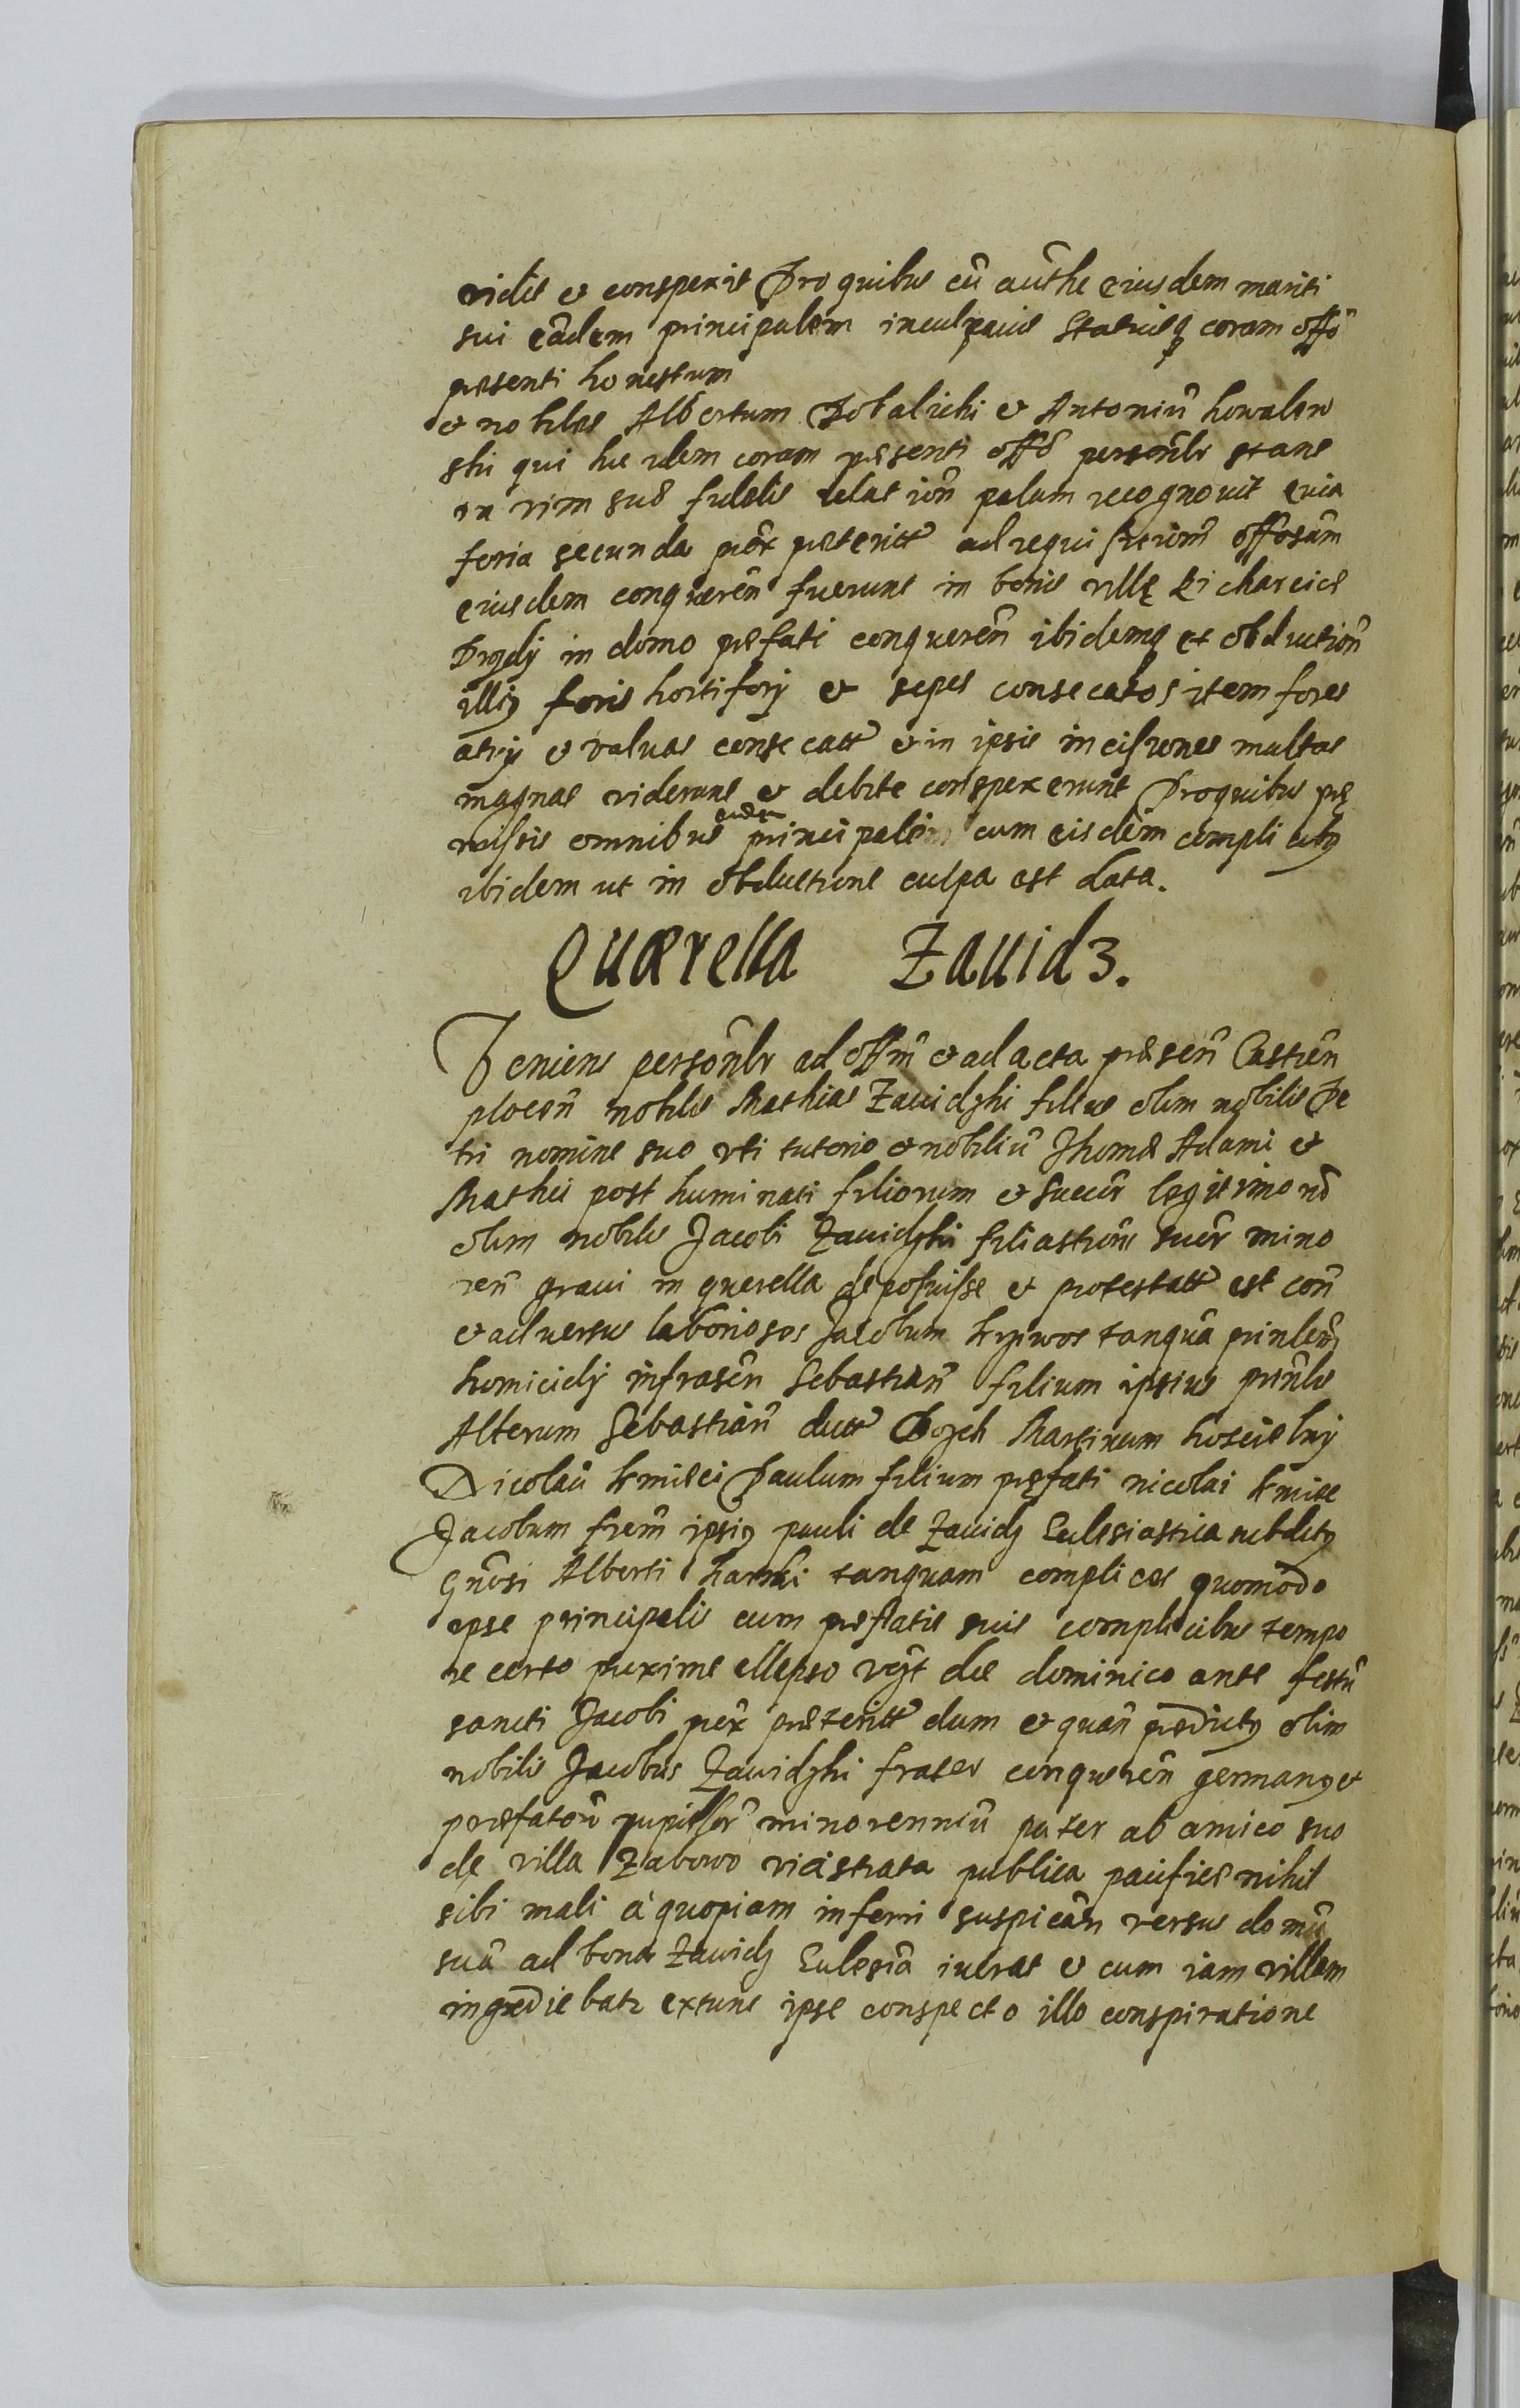 vidit et conspexit Pro quibus cũ authe eiusdem mariti
sui eãdem principalem inculpavit Statuitq coram offo
presenti honestum
et nobiles Albertum Pobalichi et Antoniũ Kowalew
ski qui hic idem coram presenti offo persõnlr stans
in vim sue fidelis relationẽ palam recognovit quia
feria secunda prox preteritt ad requisitionẽ offosam
eiusdem conquerẽn fuerunt in bonis villę
in domo prefati conquerẽn ibidemq et obductionẽ
illis foris hortiforij et sepes consecatos item fores
atrij et valvas consecatt et in ipsis incisiones multas
magnas viderunt et debite conspexerunt Pro quibus prę
missis omnibus eadem principalem cum eisdem complicibꝰ
ibidem ut in obductione culpa est data.
Quærella Zavidz.
Veniens persõnlr ad offm̃ et ad acta presẽn Castrẽn
plocẽn nobilis Mathias Zavidzki filius olim nobilis Pe
tri nomine suo uti tutorio et nobiliũ Thome Adami et
Mathei post humi nati filiorum et succr̃ legitimorũ
olim nobilis Jacobi Zavidzki filiastrorũ suor̃ mino
ren̄ gravi in querella deposuisse et protestatt est con̄
et adversus laboriosos Jacobum Krziwos tanquã prinlem̃
homicidij infrascrn̄ Sebastian̄ filium ipsius prin̄lis
Alterum Sebastian̄ dictt Martinum koscielny
Nicolaũ kmieci Paulum filium pręfati nicolai kmiec
Jacobum frem̃ ipsiꝰ pauli de Zavidz Ecclesiastica subditꝰ
Gnosi Alberti tanquam complices quomodo
ipse principalis cum prefatis suis complicibus tempo
re certo proxime ellepso vidzt die dominico ante festũ
sancti Jacobi prox preteritt dum et quan̄ predictꝰ olim
nobilis Jacobus Zavidzki frater conquerẽn germanꝰ et
prefatorũ pupillor̃ minorenniũ pater ab amico suo
de villa Zabowo via strata publica pacifice nihil
sibi mali à quopiam inferri suspicãn versus domũ
suã ad bona Zavidz Ecclesiã iverat et cum iam villam
ingrediebatr extunc ipse conspecto illo conspiratione